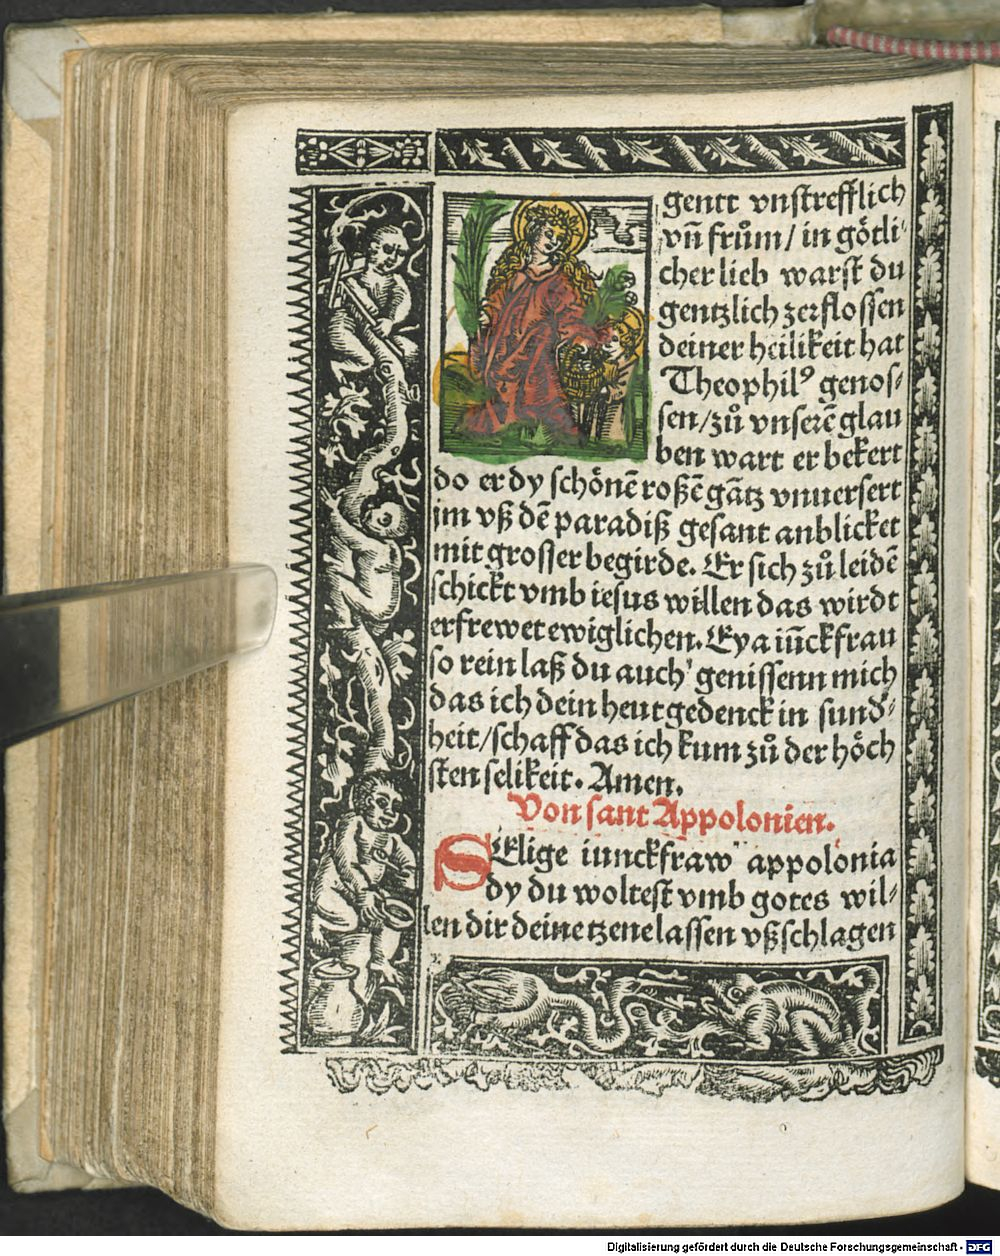 gentt vnſtrefflich
vn̄ frům/ in götli⸗
cher lieb warſt du
gentzlich zerfloſſen
deiner heilikeit hat
Theophilꝰ genoſ⸗
ſen/zů vnſerē glau
ben wart er bekert
do er dy ſchönē roßē gātz vnuerſert
jm vß dē paradiß geſant anblicket
mit groſſer begirde. Er ſich zů leidē
ſchickt vmb ieſus willen das wirdt
erfrewet ewiglichen. Eya iūckfrau
ſo rein laß du auch genieſſenn mich
das ich dein heut gedenck in ſund⸗
heit/ſchaff das ich kum zů der höch
ſten ſelikeit. Amen.
Von ſant Appolonien.
SElige iunckfraw appolonia
dy du wolteſt vmb gotes wil⸗
len dir deine tzene laſſen vßſchlagen
Digitalisierung gefördert durch die Deutsche Forschungsgemeinschaft - DFG